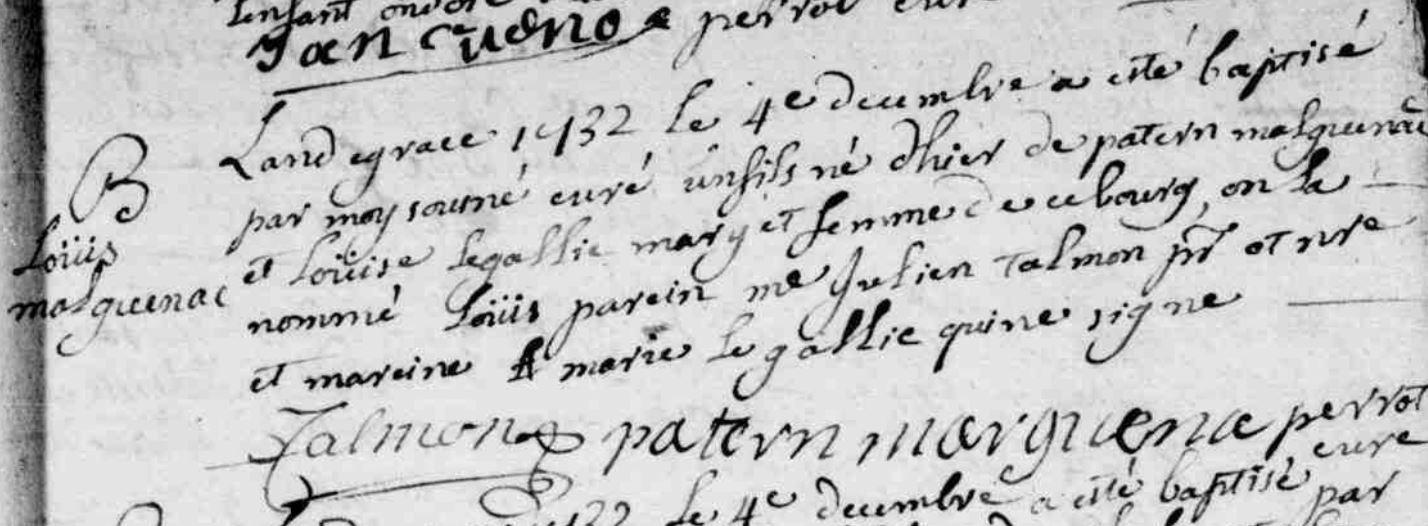 l'enfant ondoié
Jan Gueno perrot curé
B
Loüis
malguenac
L'an de grace 1732 le 4e decembre a esté baptisé
par moy sousné curé un fils né d'hier de patern malguenac
et Loüise legallic mary et femme de ce bourg, on l'a
nommé Loüis parein me Julien talmon pr et nre
et mareine marie le gallic qui ne signe
Talmon patern marguena perrot
curé
1732 le 4e decembre a esté baptisé par